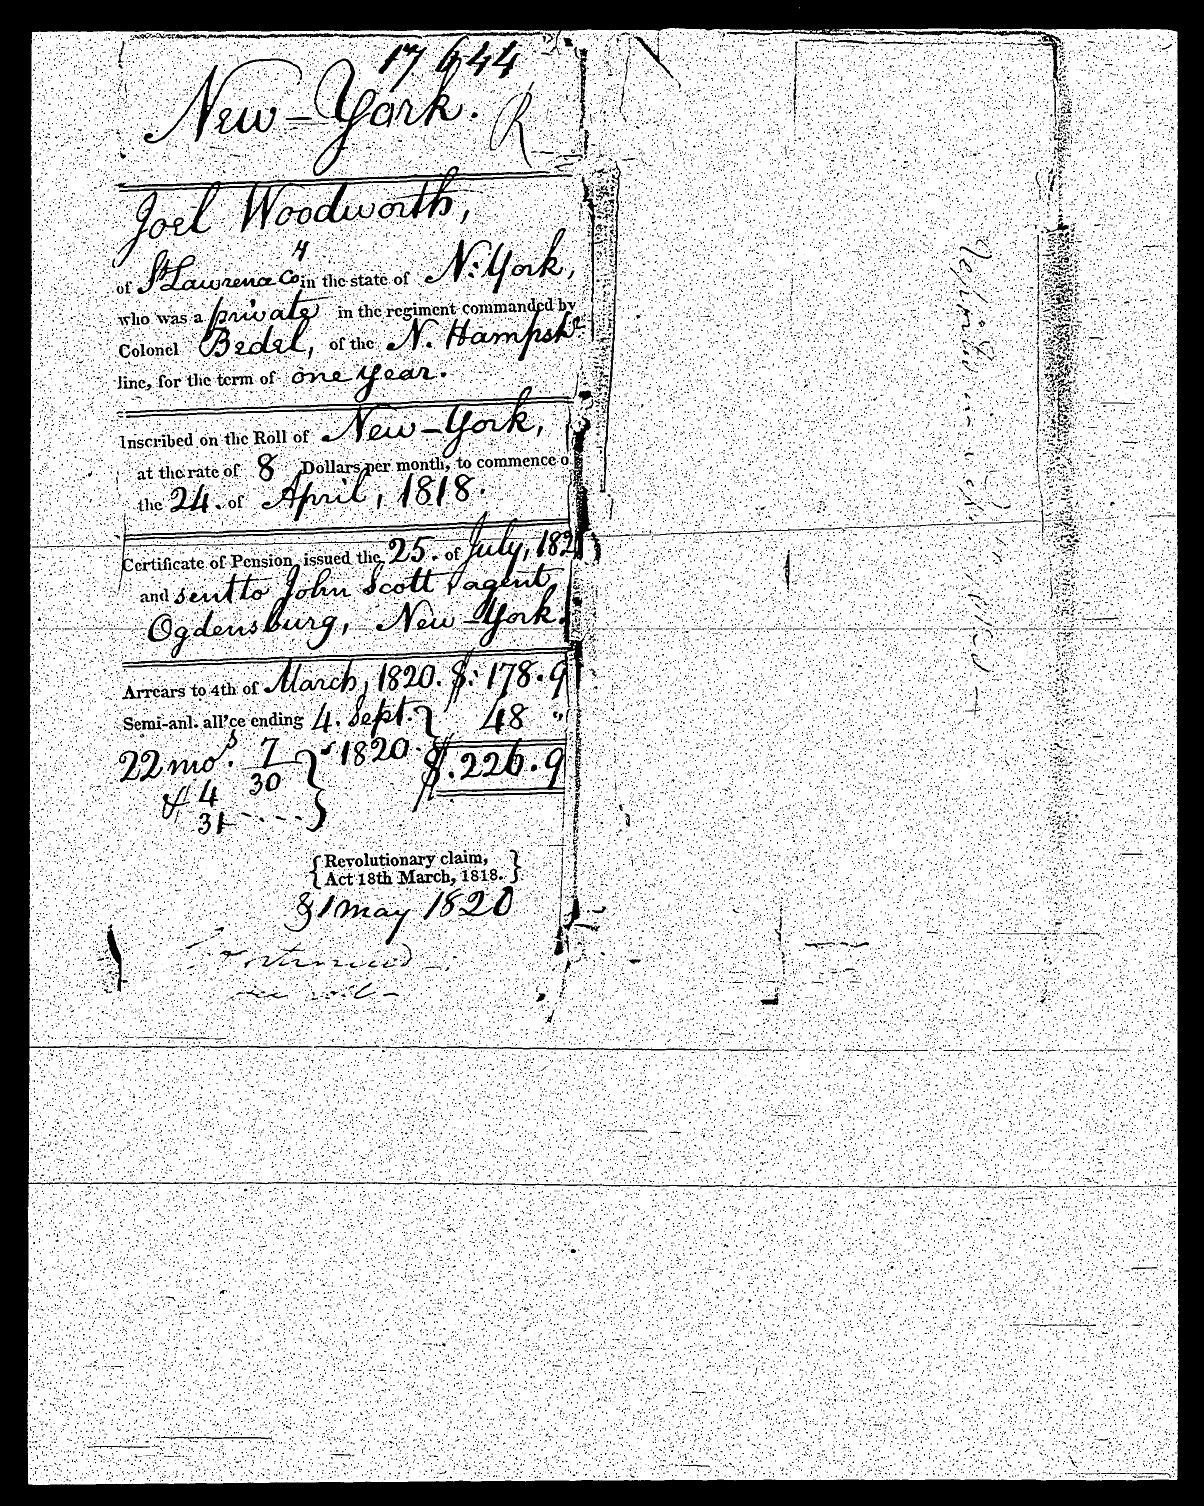 17 644
New-York. R
Joel Woodworth,
of St Lawrence Co in the state of N: York,
who was a private in the regiment commanded by
Colonel Bedel, of the N. Hampshr
line, for the term of one year.
Inscribed on the Roll of New-York,
at the rate of 8 Dollars per month, to commence o
the 24. of April, 1818.
Certificate of Pension issued the 25. of July, 182
and sent to John Scott agent,
Ogdensburg, New-York.
Arrears to 4th of March, 1820. $: 178.9
Semi-anl. all'ce ending 4. Sept. } 48 "
22 mos. 7 } 1820. $.226.9
30
& 4
31
{Revolutionary claim,}
{Act 18th March, 1818.}
& 1 may 1820
Continued
see